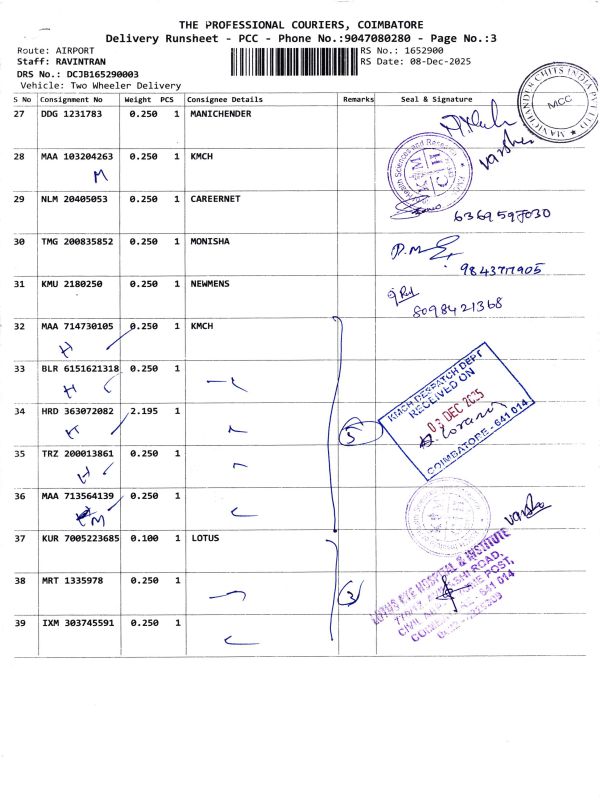 THE PROFESSIONAL COURIERS, COIMBATORE
Delivery Runsheet - PCC - Phone No.:9047080280 - Page No.:3
Route: AIRPORT
RS No.: 1652900
Staff: RAVINTRAN
RS Date: 08-Dec-2025
DRS No.: DCJB165290003
Vehicle: Two Wheeler Delivery
MANICHANDER CHITS INDIA PVT LTD
MCC
S No Consignment No Weight PCS Consignee Details Remarks Seal & Signature
27 DDG 1231783 0.250 1 MANICHENDER
Varsha
28 MAA 103204263 0.250 1 KMCH
M
Health Sciences and Research
KMCH
29 NLM 20405053 0.250 1 CAREERNET
6369597030
30 TMG 200835852 0.250 1 MONISHA
9843717905
31 KMU 2180250 0.250 1 NEWMENS
8098421368
32 MAA 714730105 0.250 1 KMCH
H
33 BLR 6151621318 0.250 1
H
34 HRD 363072082 2.195 1
H
5
KMCH DESPATCH DEPT
RECEIVED ON
08 DEC 2025
COIMBATORE - 641 014
35 TRZ 200013861 0.250 1
H
36 MAA 713564139 0.250 1
M
Varsha
37 KUR 7005223685 0.100 1 LOTUS
LOTUS EYE HOSPITAL & INSTITUTE
770/12, AVINASHI ROAD,
CIVIL AERODROME POST,
38 MRT 1335978 0.250 1
3
39 IXM 303745591 0.250 1